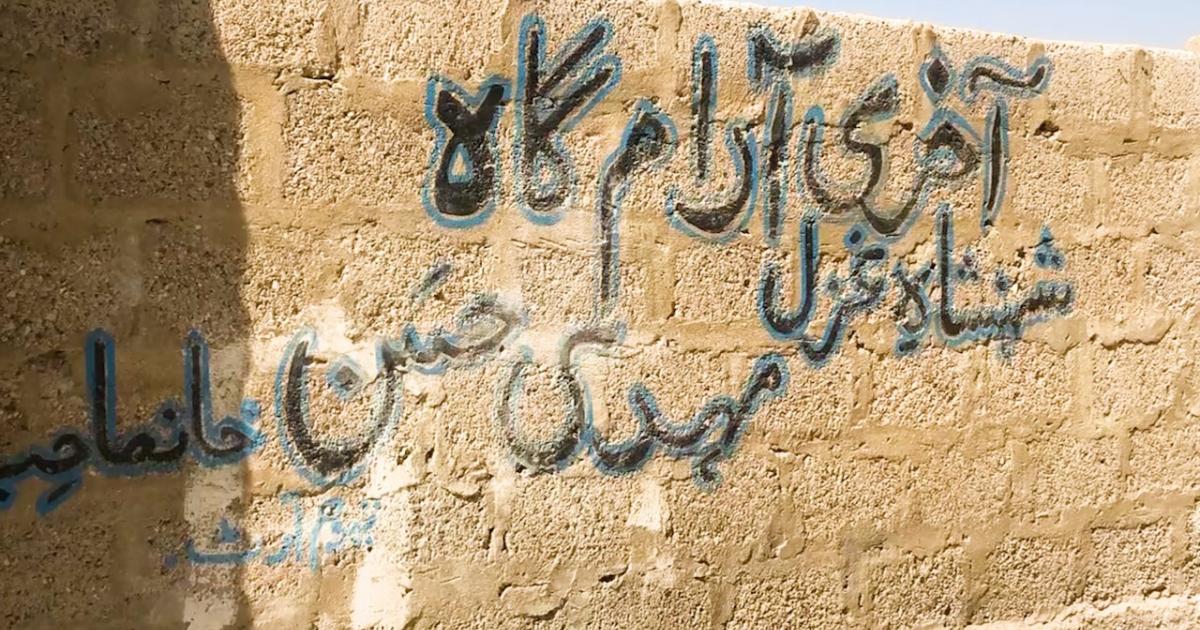 آخری آرام گاہ
شہنشاہ غزل
مہدی حسن خانصاحب
آرٹ